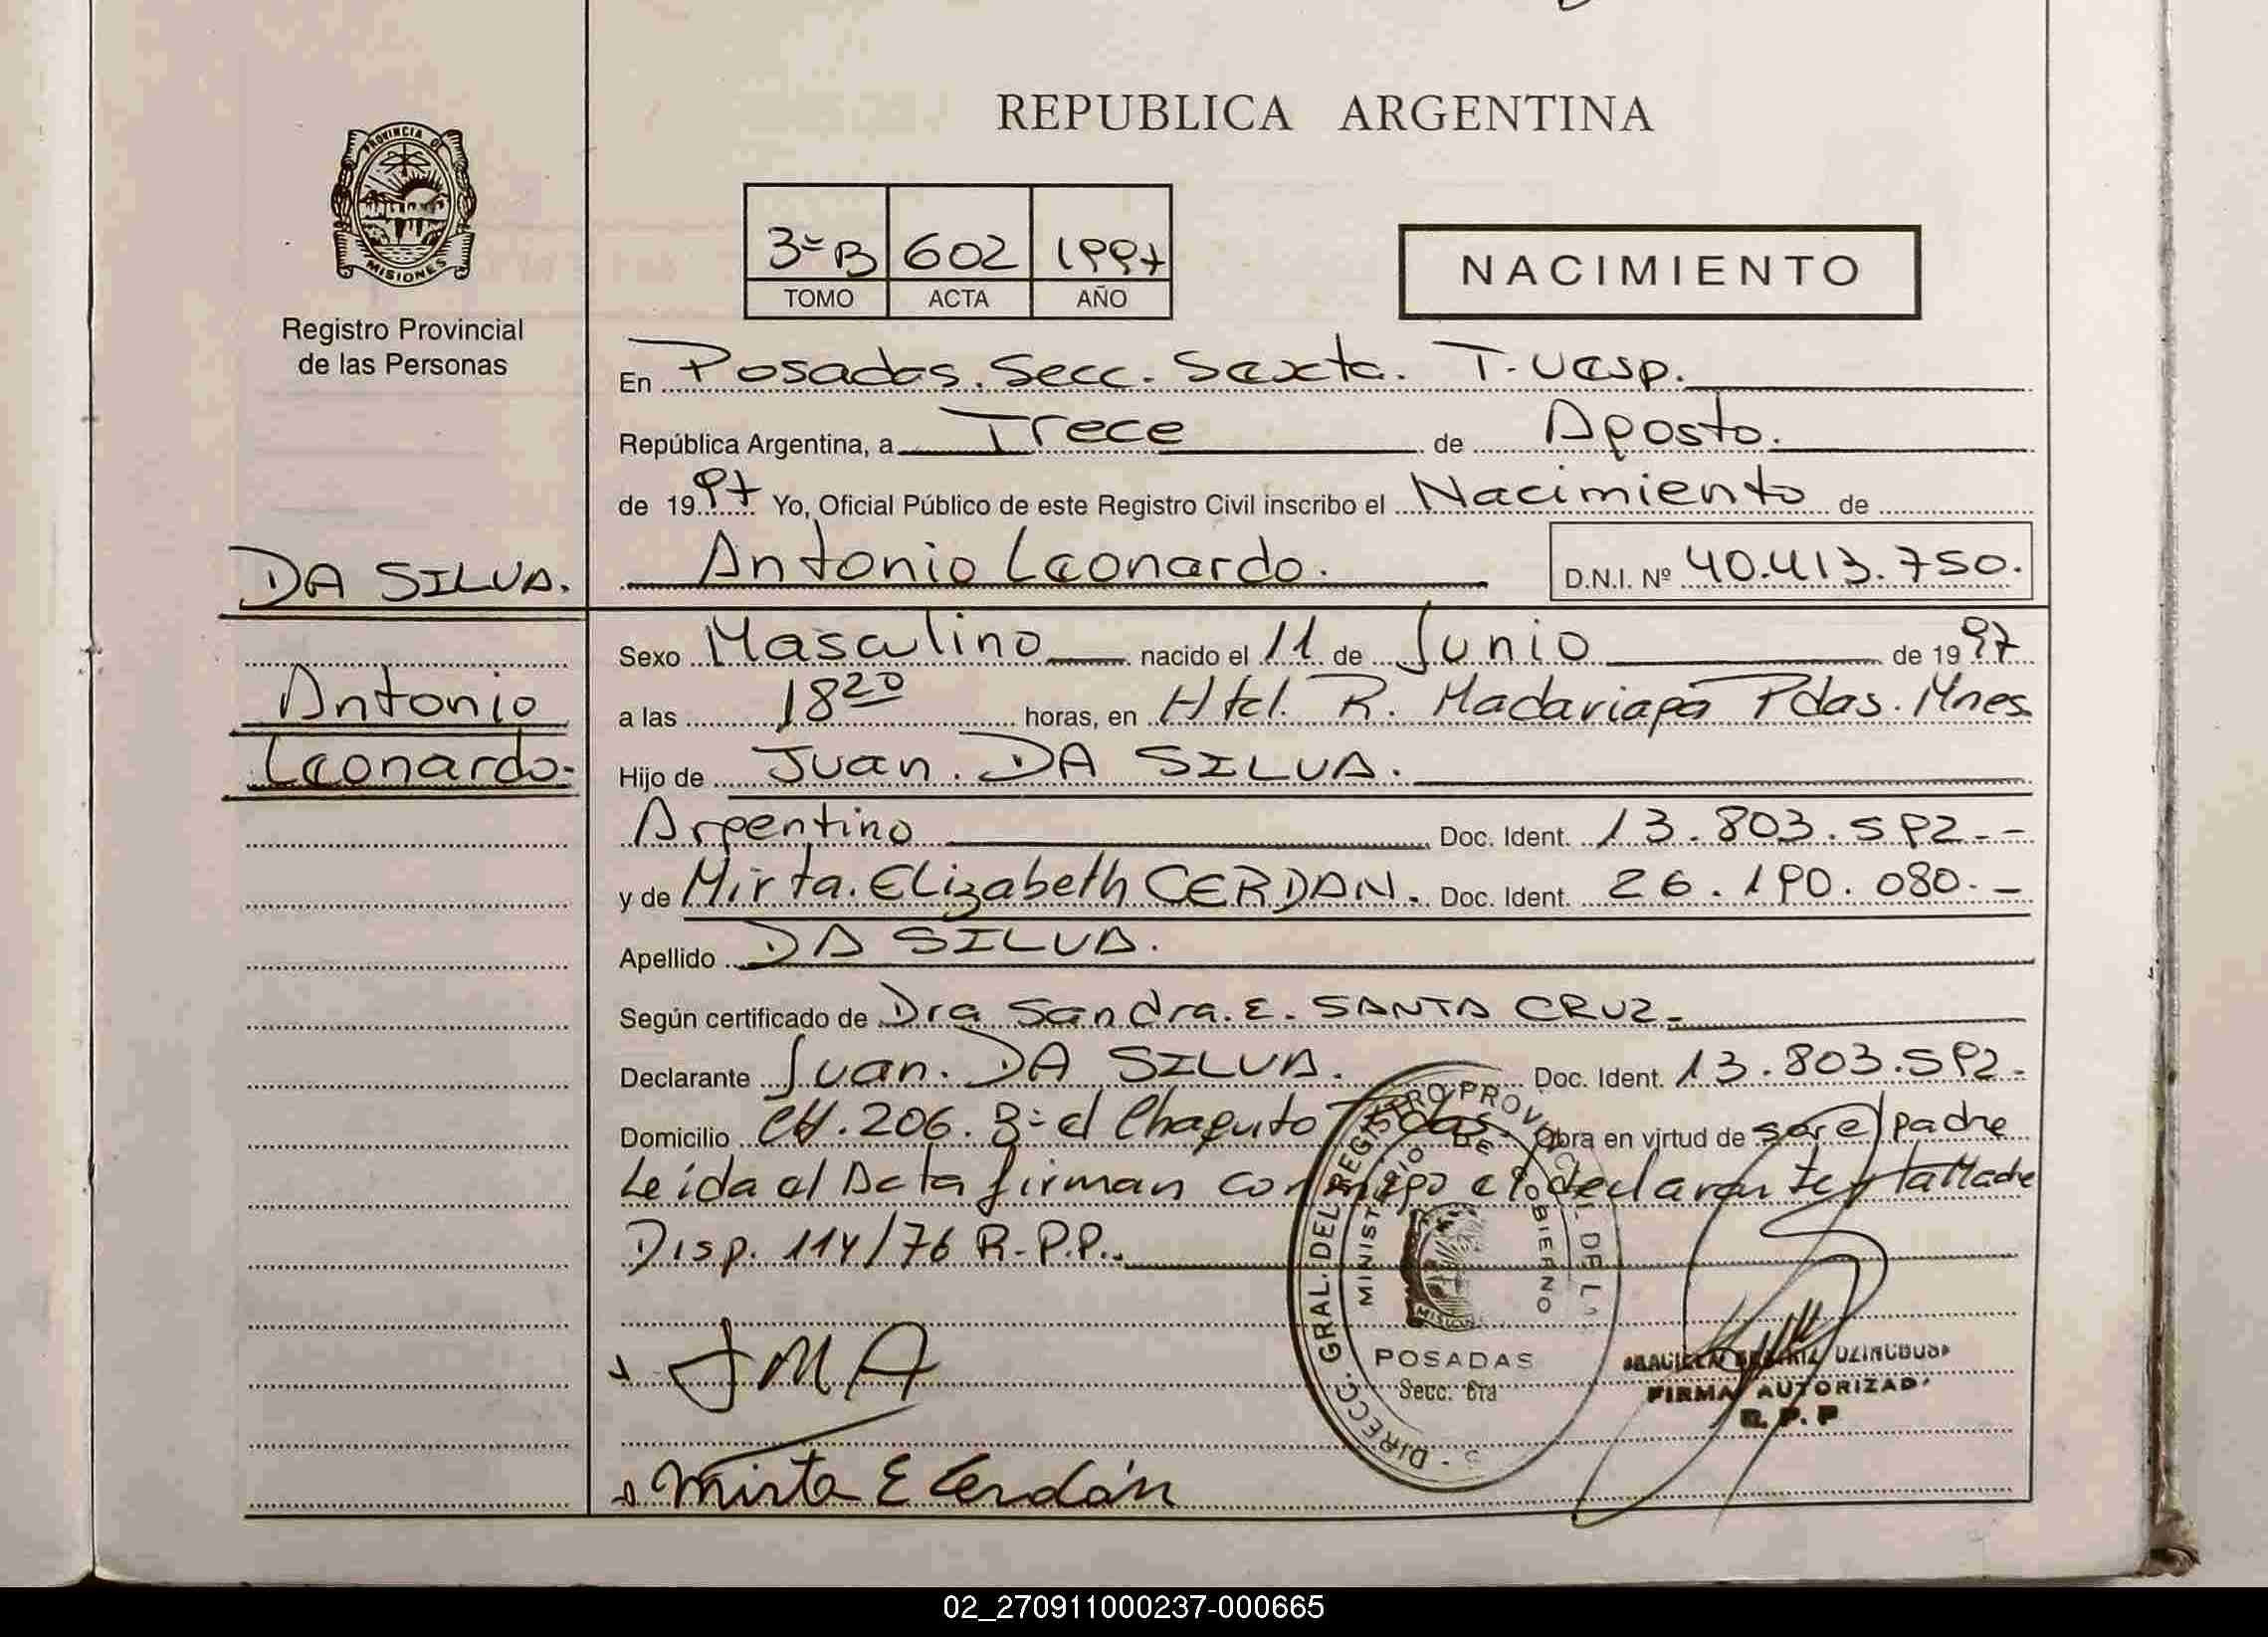 REPUBLICA ARGENTINA
PROVINCIA DE
MISIONES
Registro Provincial
de las Personas
3ºB 602 1997
TOMO ACTA AÑO
NACIMIENTO
En Posadas. Secc. Sexta. T. Vesp.
República Argentina, a Trece de Agosto.
de 1997 Yo, Oficial Público de este Registro Civil inscribo el Nacimiento de
Antonio Leonardo. D.N.I. Nº 40.413.750.
DA SILVA.
Antonio
Leonardo.
Sexo Masculino nacido el 11 de Junio de 1997
a las 18 20 horas, en Htal. R. Madariaga Pdas. Mnes
Hijo de Juan. DA SILVA.
Argentino Doc. Ident. 13.803.592--
y de Mirta. Elizabeth CERDAN. Doc. Ident. 26.190.080.-
Apellido DA SILVA.
Según certificado de Dra Sandra. E. SANTA CRUZ-
Declarante Juan. DA SILVA. Doc. Ident. 13.803.592-
Domicilio CH. 206. Bº el Chaquito Pdas. Obra en virtud de ser el padre
Leida el Acta firman conmigo el declarante y la Madre
Disp. 114/76 R.P.P.
JMA
Mirta E Cerdán
DIRECC. GRAL. DEL REGISTRO PROVINCIAL DE L
MINISTERIO DE GOBIERNO
MISIONES
POSADAS
Secc. 6ta
FIRMA AUTORIZAD
R. P. P
02_270911000237-000665